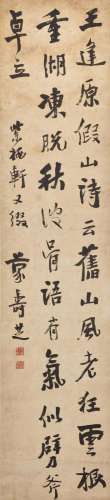 王逢原假山詩云舊山風老狂雲根
重湖凍脫秋波骨語有氣似劈斧
卓立
紫桃軒又綴
蒙壽芝